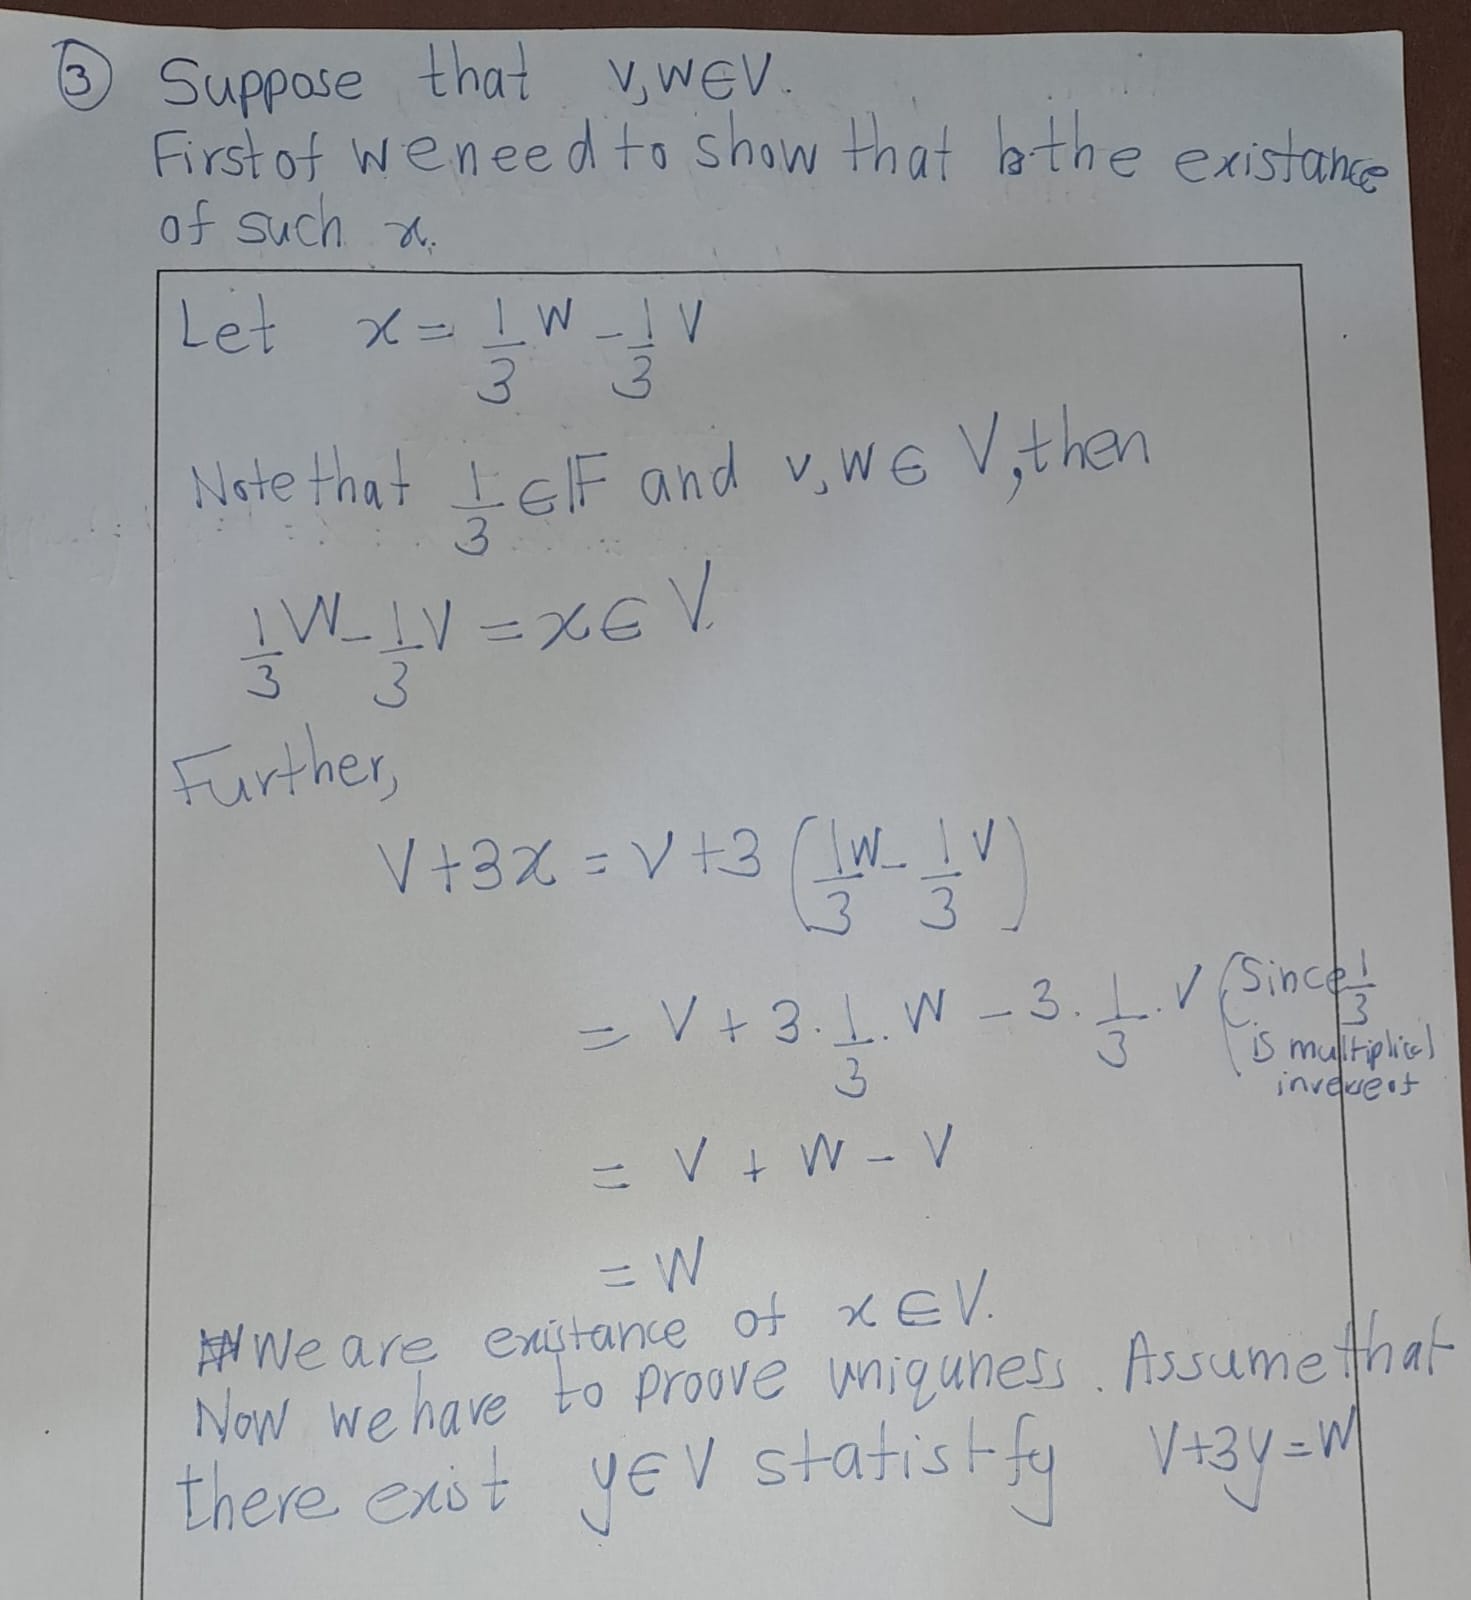 ③ Suppose that v,w∈V.
First of we need to show that the existance
of such x.
Let x = 1/3 w - 1/3 v
Note that 1/3 ∈ 𝔽 and v,w ∈ V, then
1/3 w - 1/3 v = x ∈ V.
Further,
v+3x = v+3 (1/3 w - 1/3 v)
= v + 3. 1/3 . w - 3. 1/3 . v (Since 1/3
is
= v + w - v
= w
We are existance of x ∈ V.
Now we have to proove uniquness. Assume that
there exist y∈V statistfy v+3y=w